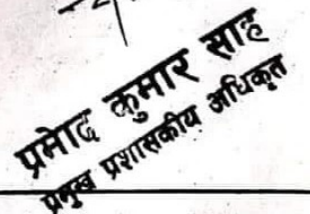 प्रमोद कुमार साह
प्रमुख प्रशासकीय अधिकृत